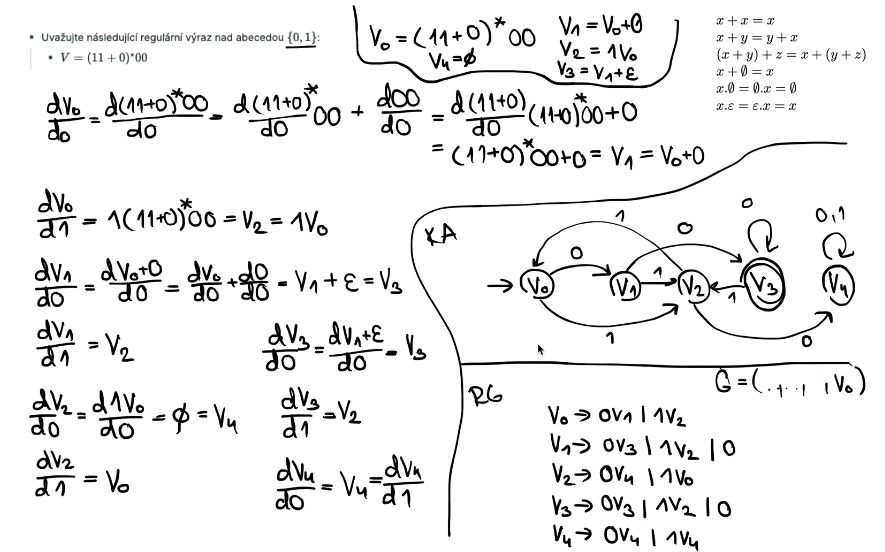 • Uvažujte následující regulární výraz nad abecedou {0,1}:
• V = (11 + 0)*00
V₀ = (11+0)*00
V₄=∅
V₁ = V₀+0
V₂ = 1V₀
V₃ = V₁+ε
x + x = x
x + y = y + x
(x + y) + z = x + (y + z)
x + ∅ = x
x.∅ = ∅.x = ∅
x.ε = ε.x = x
dV₀/d0 = d(11+0)*00/d0 = d(11+0)*/d0 00 + d00/d0 = d(11+0)/d0 (11+0)*00+0
= (11+0)*00+0 = V₁ = V₀+0
dV₀/d1 = 1(11+0)*00 = V₂ = 1V₀
dV₁/d0 = dV₀+0/d0 = dV₀/d0 + d0/d0 = V₁ + ε = V₃
dV₁/d1 = V₂
dV₃/d0 = dV₁+ε/d0 = V₃
dV₂/d0 = d1V₀/d0 = ∅ = V₄
dV₃/d1 = V₂
dV₂/d1 = V₀
dV₄/d0 = V₄ = dV₄/d1
KA
1
0
0
0
0,1
V₀
V₁
1
V₂
1
V₃
V₄
1
0
RG
G = (., ., ., V₀)
V₀ → 0V₁ | 1V₂
V₁ → 0V₃ | 1V₂ | 0
V₂ → 0V₄ | 1V₀
V₃ → 0V₃ | 1V₂ | 0
V₄ → 0V₄ | 1V₄